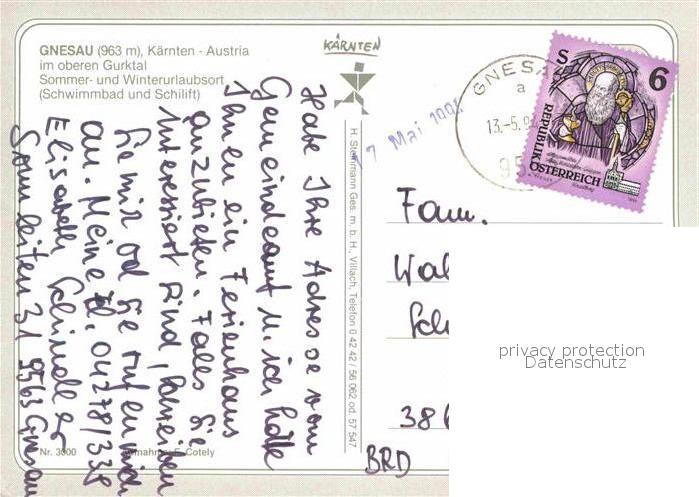 GNESAU (963 m), Kärnten - Austria
im oberen Gurktal
Sommer- und Winterurlaubsort
(Schwimmbad und Schilift)
KÄRNTEN
Habe Ihre Adresse vom
Gemeindeamt u. ich hätte
Ihnen ein Ferienhaus
anzubieten. Falls Sie
interessiert sind, schreiben
Sie mir od Sie rufen mich
an. Meine Tel. 04278/338
Elisabeth
Sonnleiten 31 9563 Gnesau
Nr. 3000
Aufnahme: E. Cotely
H. Steinmann Ges. m. b. H., Villach, Telefon 0 42 42 / 56 062 od. 57 547
17 Mai
GNESA
a
13.-5.9
95
S 6
REPUBLIK
ÖSTERREICH
Fam.
Wal
Sch
386
BRD
privacy protection
Datenschutz